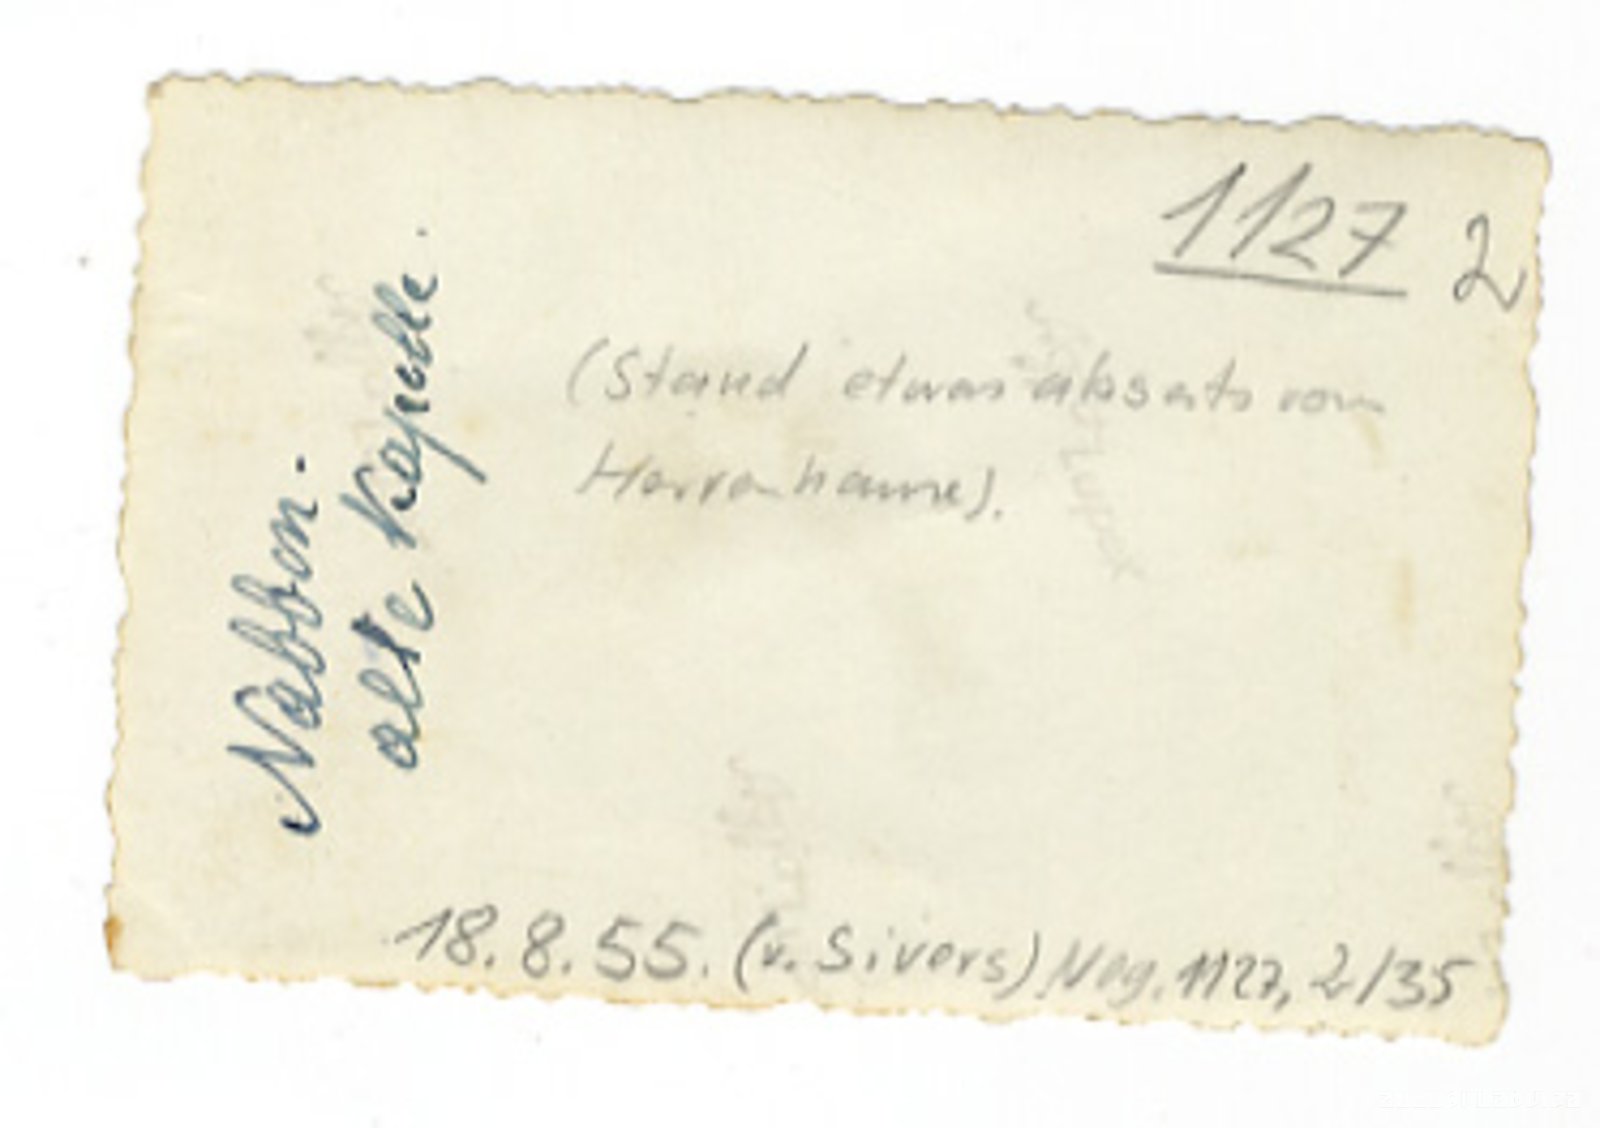 1127 2
(Stand etwas abseits vom
Herrenhause).
Nabbon.
alte Kapelle.
18.8.55. (v. Sivers) Neg. 1127, 2/35